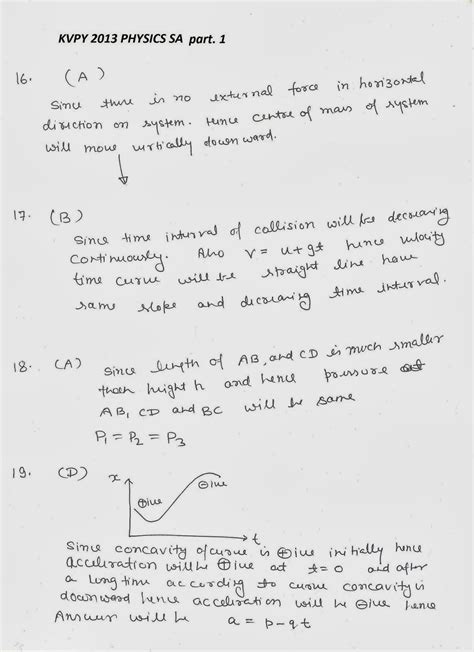 KVPY 2013 PHYSICS SA part. 1
16. (A)
Since there is no external force in horizontal
direction on system. Hence centre of mass of system
will move vertically downward.
17. (B)
Since time interval of collision will be decreasing
continuously. Also v = u + gt hence velocity
time curve will be straight line have
same slope and decreasing time interval.
18. (A) Since length of AB, and CD is much smaller
than height h and hence pressure at
AB, CD and BC will be same
P₁ = P₂ = P₃
19. (D) x ⊕ive ⊖ive t
Since concavity of curve is ⊕ive initially hence
acceleration will be ⊕ive at t=0 and after
a long time according to curve concavity is
downward hence acceleration will be ⊖ive hence
Answer will be a = p - qt